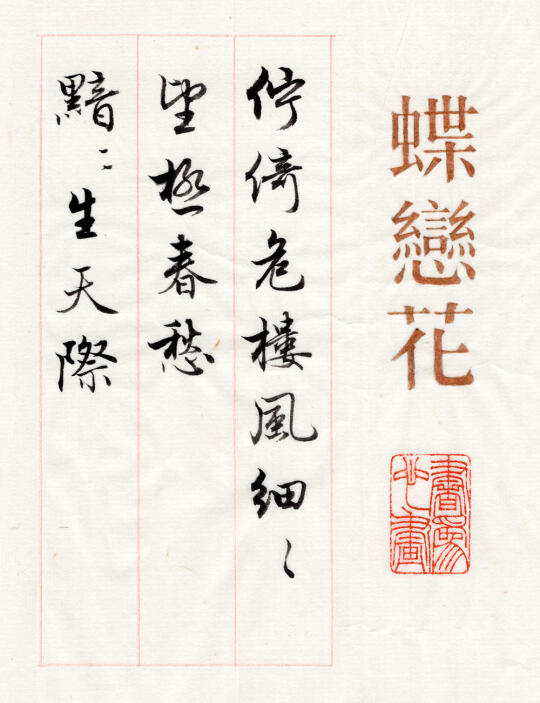 蝶戀花
佇倚危樓風細〻
望極春愁
黯〻生天際